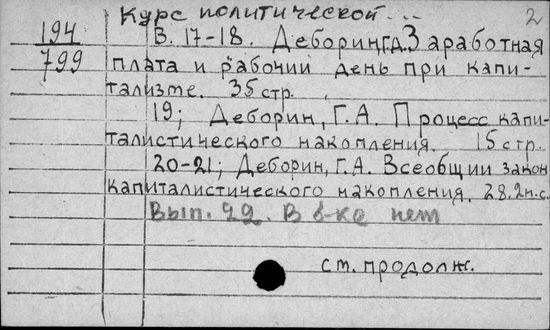 Курс политической... 2
194 В. 17-18. Деборин, Г.А. Заработная
799 плата и рабочий день при капи-
тализме. 35 стр.
19; Деборин, Г.А. Процесс капи-
талистического накопления. 15 стр.
20-21; Деборин, Г.А. Всеобщий закон
капиталистического накопления. 28.2п.с.
Вып. 22. В б-ке нет
см. продолж.